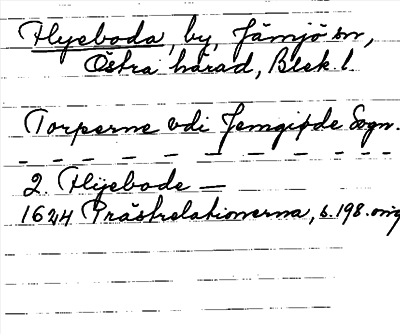 Flyeboda, by, Jämjö sn,
Östra härad, Blek. l.
Torperne vdi Jemgiøde Sogn.
2. Flÿebode —
1624 Prästrelationerna, s. 198. orig